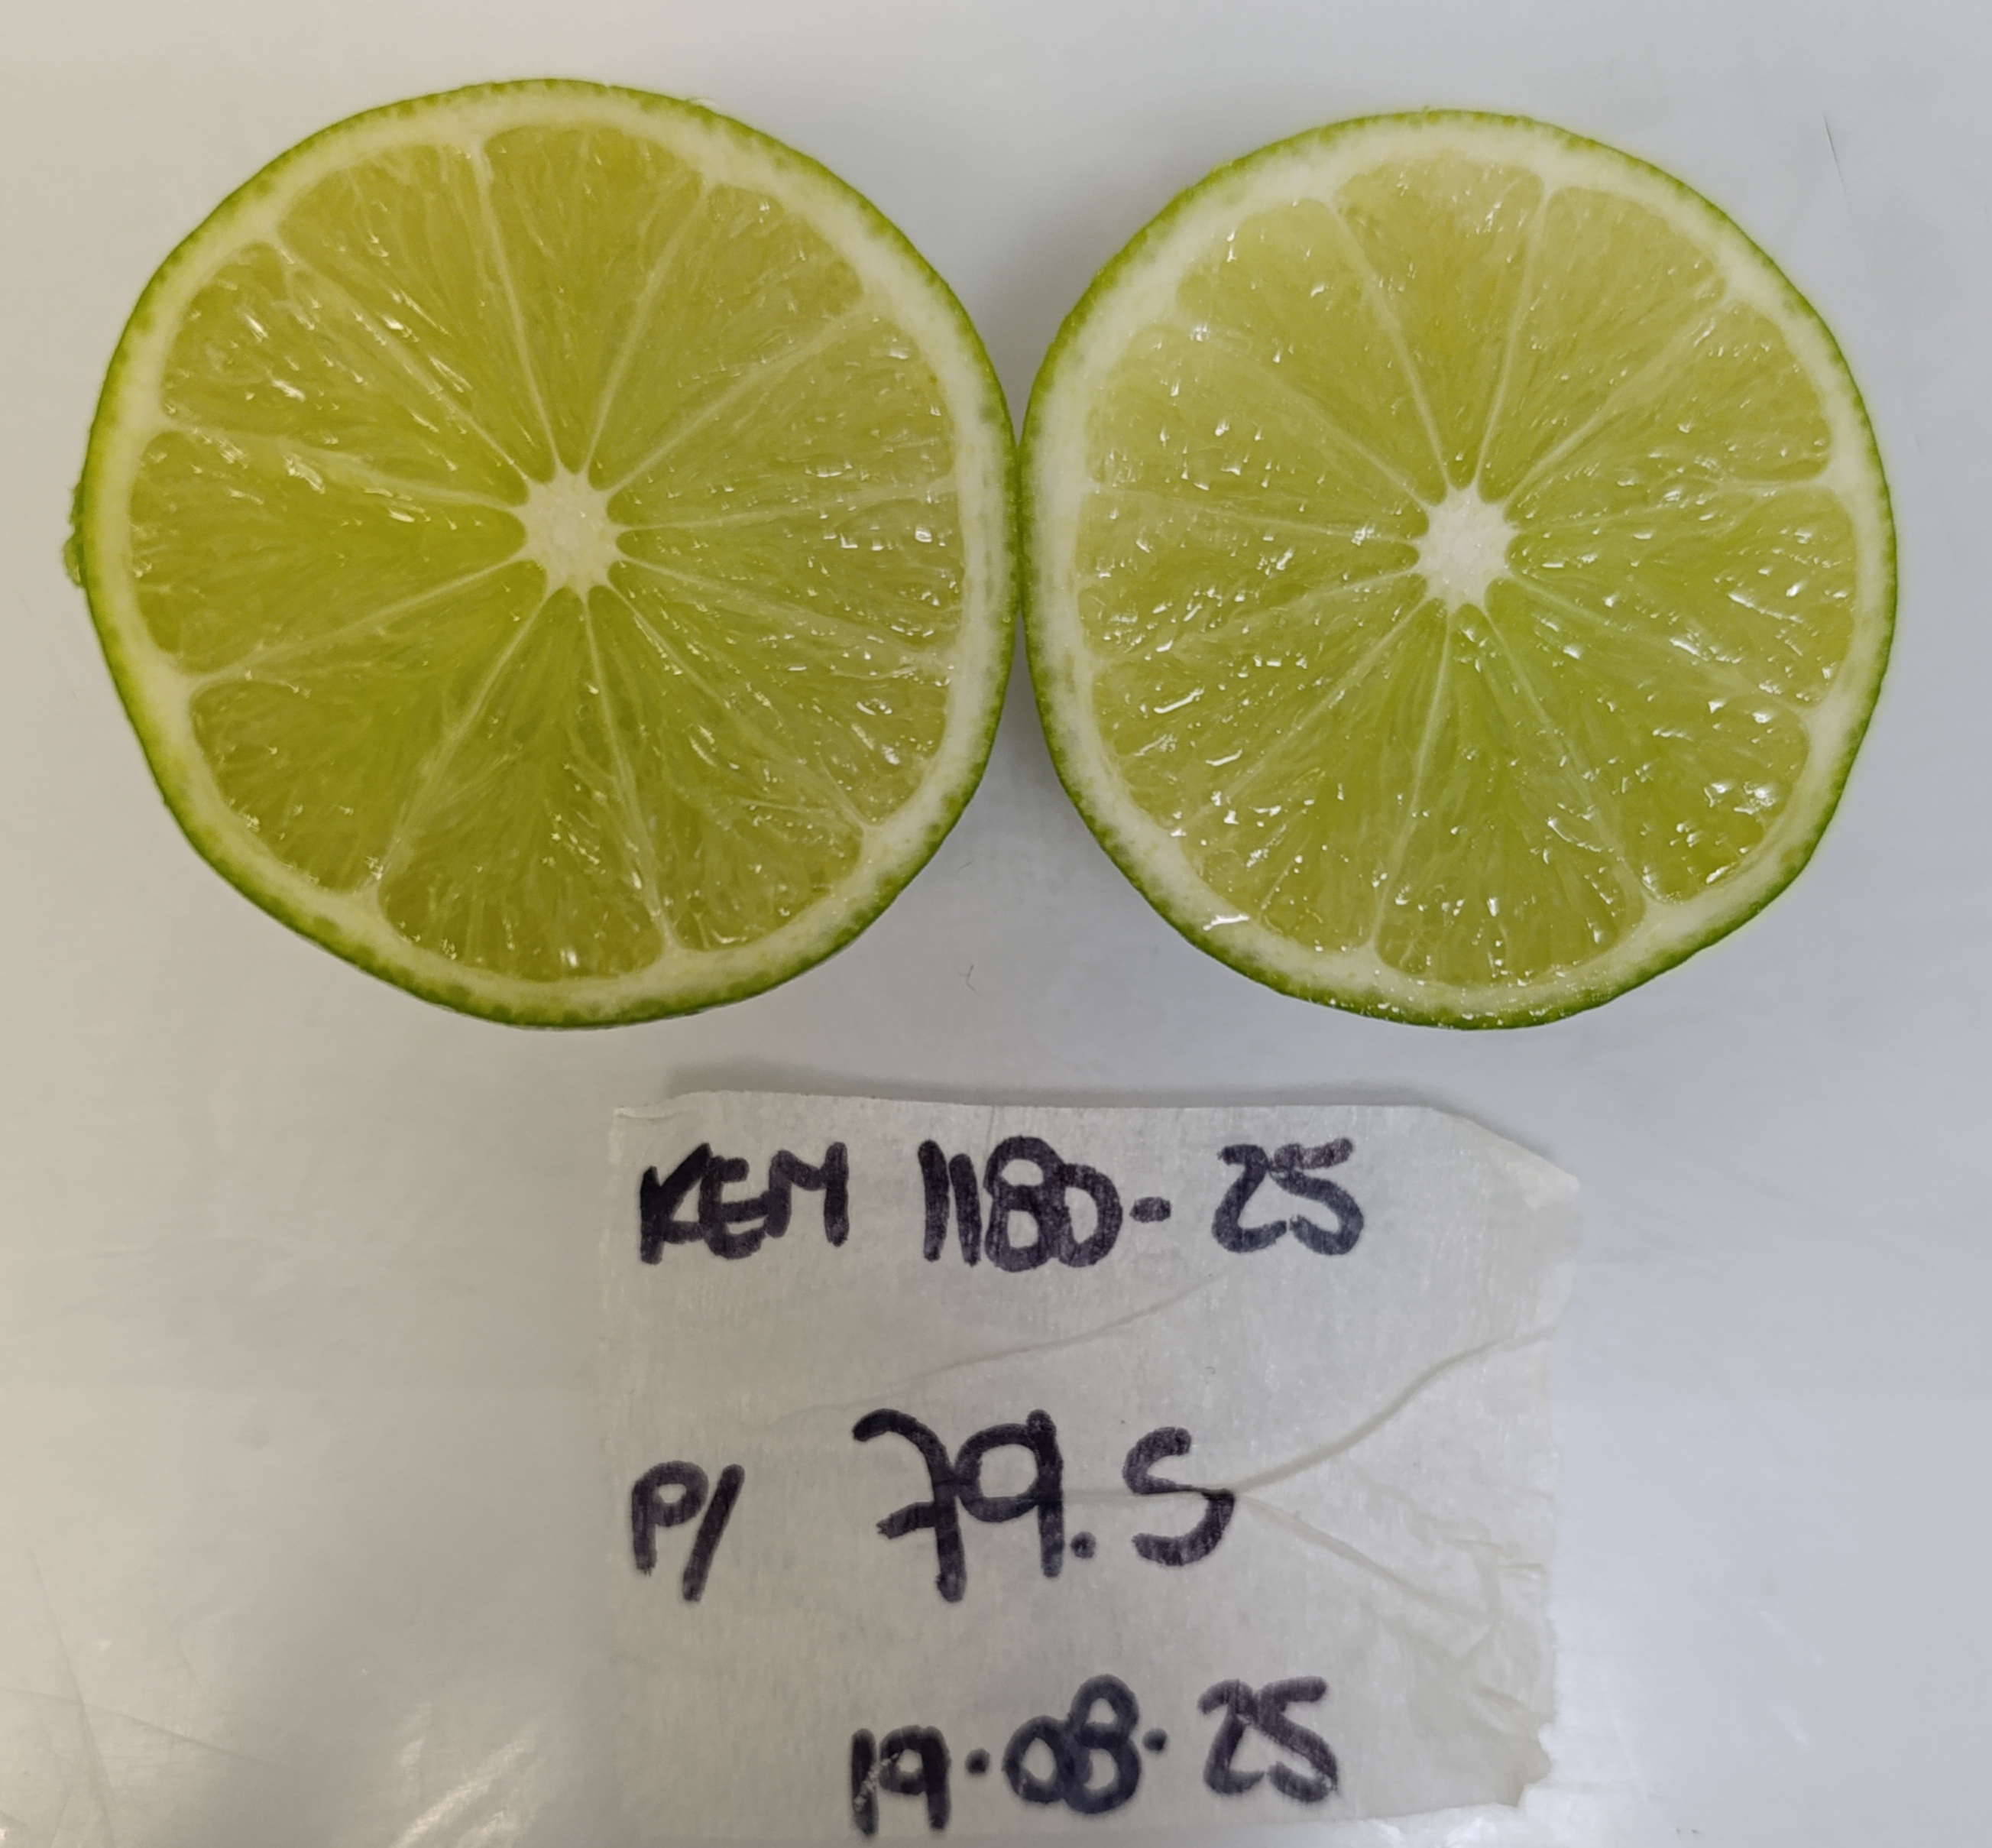 KEM 1180-25
P/ 79.5
19.08.25